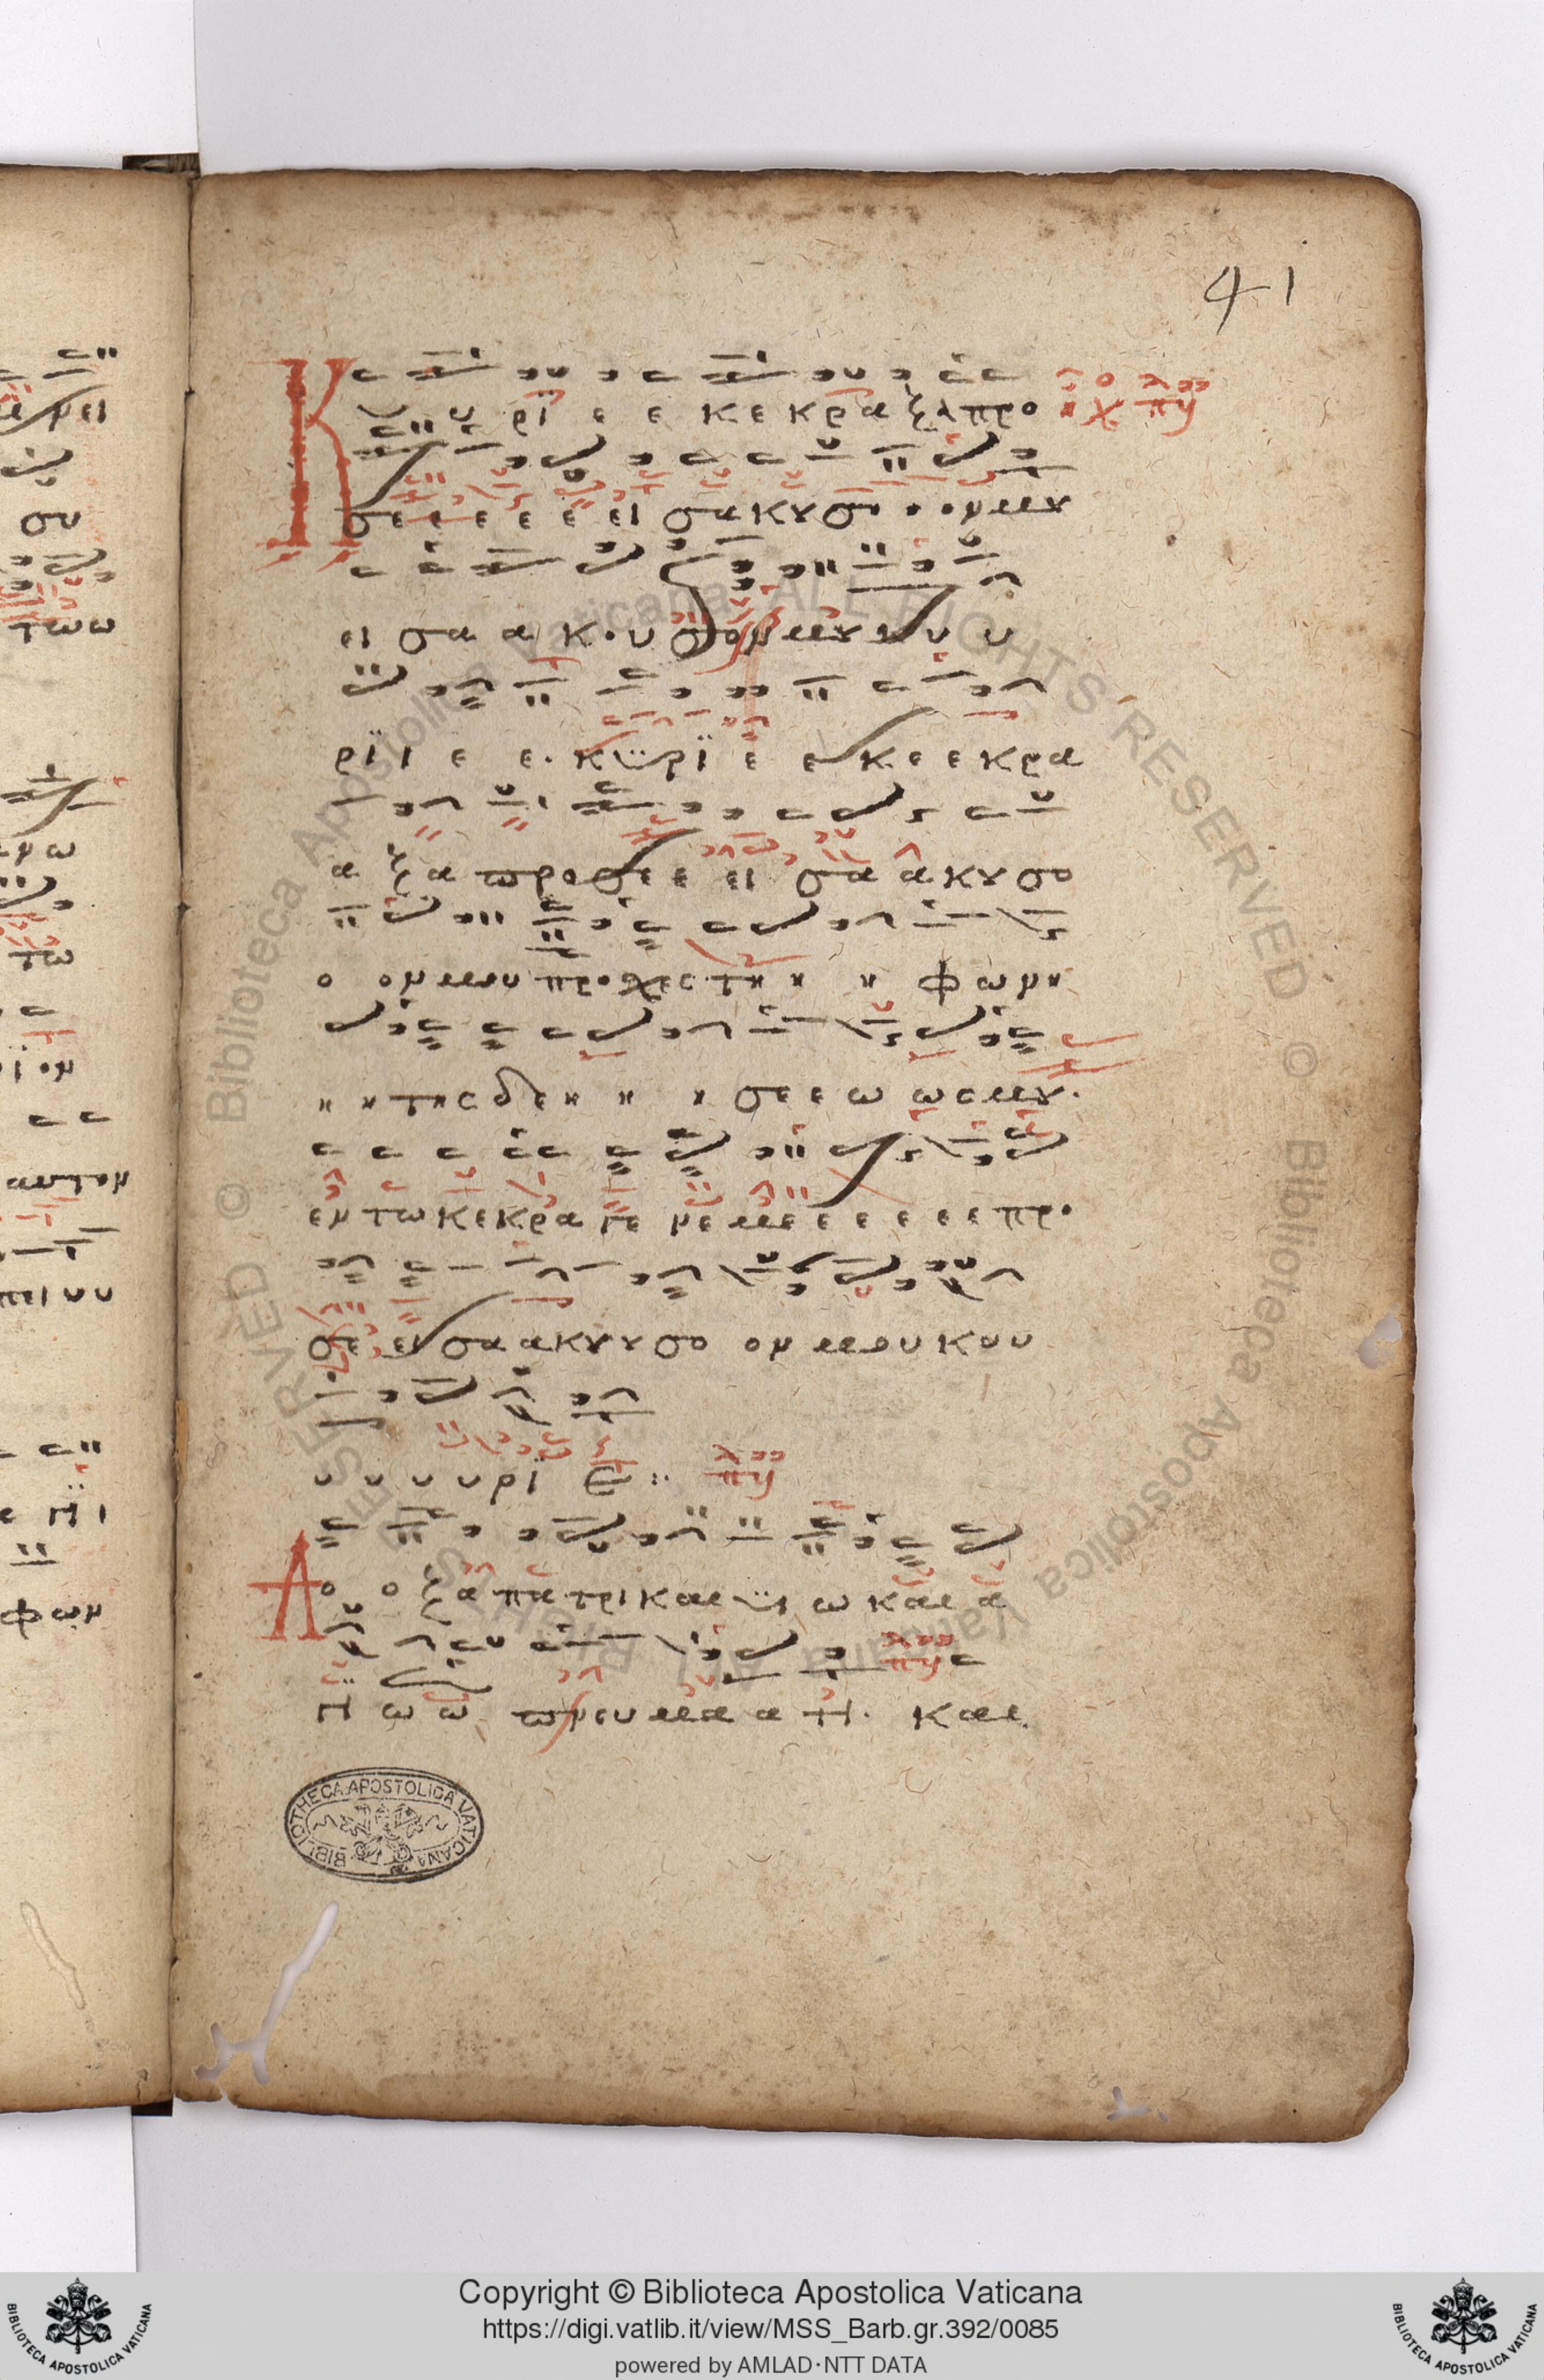 41
Κυ υ ρϊ ε ε κε κρα ξα προ ἦχ πλ
σε ε ε ε ε ει σα κȣ σο ο ομ μȣ
ει σα α κου σομ μȣ κυ υ
ρϊ ι ε ε. κϋρϊ ε ε κε ε κρα
α ξα προ σε ε ει σα α κȣ σο
ο ομ μου προσχες τη η η φωνη
η η της δε η η η σε ε ω ως μȣ.
εν τω κεκραγε με με ε ε ε ε ε προ
σε ει σα ακȣȣσο ομ μου κυυ
υ υ υ υρϊ ε:: πλ
Δο ο ξα πα τρι και ϋι ω και α
γι ω ω πνευμα α τι. και
BIBLIOTHECA APOSTOLICA VATICANA
© Biblioteca Apostolica Vaticana ALL RIGHTS RESERVED
Copyright © Biblioteca Apostolica Vaticana
https://digi.vatlib.it/view/MSS_Barb.gr.392/0085
powered by AMLAD·NTT DATA
BIBLIOTECA APOSTOLICA VATICANA
BIBLIOTECA APOSTOLICA VATICANA